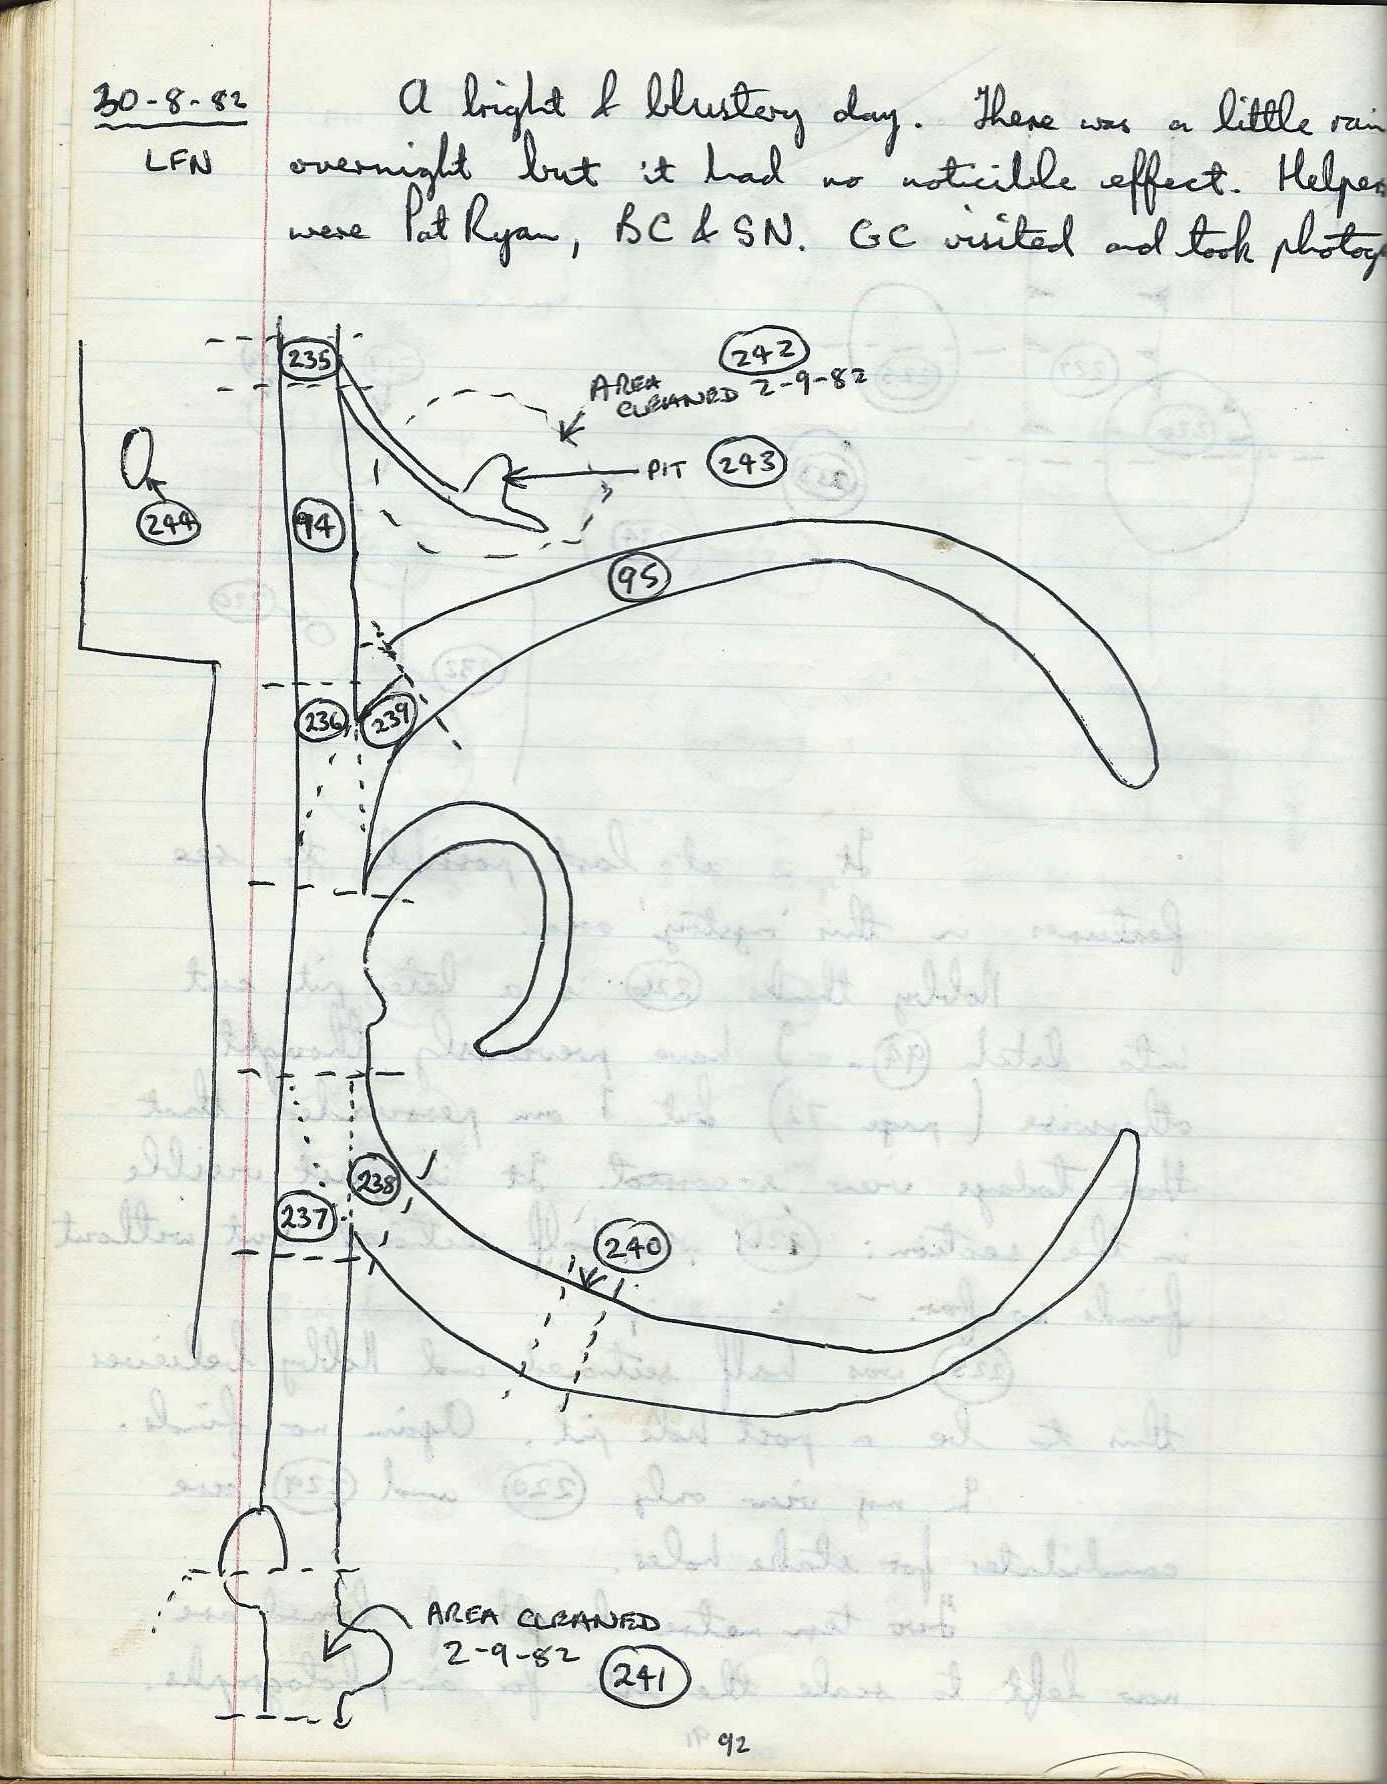 30-8-82 A bright & blustery day. There was a little rain
LFN overnight but it had no noticible effect. Helpers
were Pat Ryan, BC & SN. GC visited and took photog
235
242
AREA
CLEANED 2-9-82
PIT 243
244
94
95
236 239
238
237
240
AREA CLEANED
2-9-82
241
92